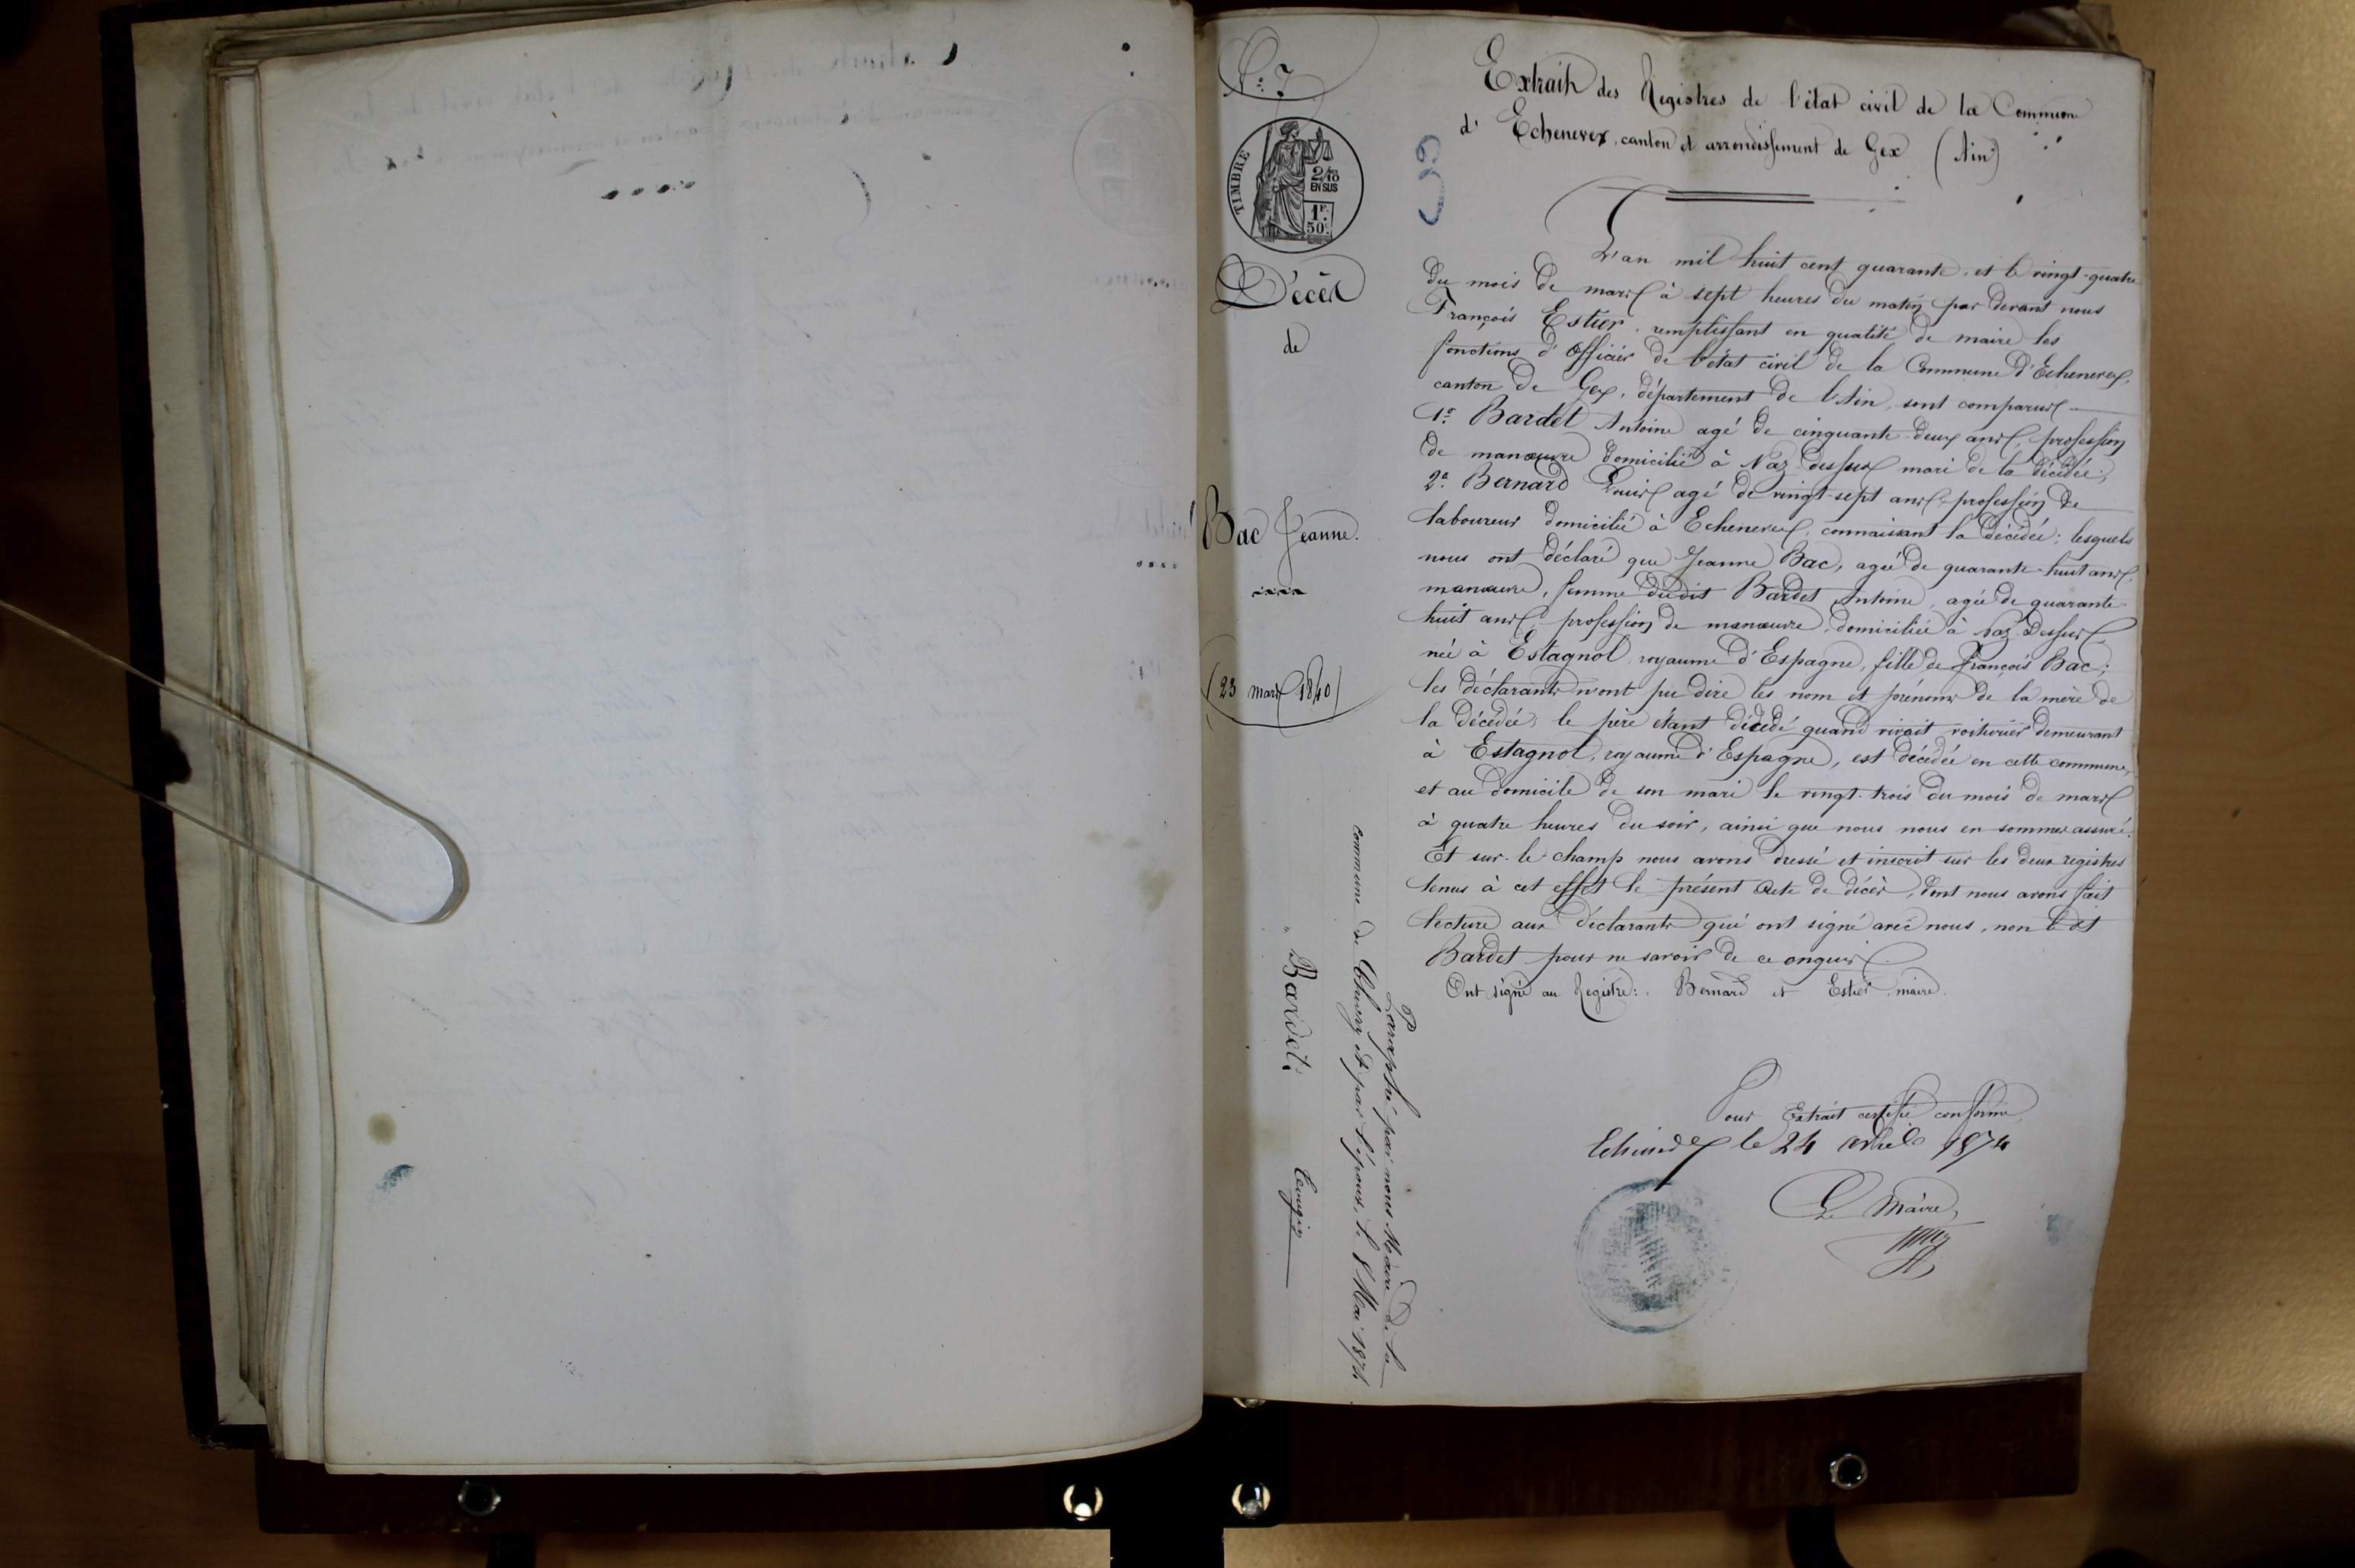 N° 7
TIMBRE
2/10
EN SUS
1F.
50c.
Décès
de
Bac Jeanne.
(23 mars 1840)
Extrait des Registres de l'état civil de la Commune
d'Echenevex, canton et arrondissement de Gex (Ain)
39
L'an mil huit cent quarante, et le vingt-quatre
du mois de mars à sept heures du matin, par devant nous
François Estier, remplissant en qualité de maire les
fonctions d'officier de l'état civil de la Commune d'Echenevex,
canton de Gex, département de l'Ain, sont comparus
1° Bardet Antoine agé de cinquante-deux ans, profession
de manœuvre domicilié à Naz-dessus mari de la décédée;
2° Bernard Louis agé de vingt-sept ans, profession de
laboureur domicilié à Echenevex, connaissant la décédée; lesquels
nous ont déclaré que Jeanne Bac, agée de quarante-huit ans,
manœuvre, femme dudit Bardet Antoine, agée de quarante-
huit ans, profession de manœuvre, domiciliée à Naz-Dessus,
née à Estagnol, royaume d'Espagne, fille de François Bac;
les déclarants n'ont pu dire les nom et prénoms de la mère de
la décédée; le père étant décédé quand vivait voiturier demeurant
à Estagnol, royaume d'Espagne, est décédée en cette commune,
et au domicile de son mari le vingt-trois du mois de mars
à quatre heures du soir, ainsi que nous nous en sommes assuré.
Et sur-le-champ nous avons dressé et inscrit sur les deux registres
tenus à cet effet le présent acte de décès, dont nous avons fait
lecture aux déclarants qui ont signé avec nous, non le dit
Bardet pour ne savoir de ce enquis.
Ont signé au Registre: Bernard et Estier, maire.
Pour Extrait certifié conforme
Echenevex le 24 avril 1874
Le Maire,
Paraphé par nous Maire de la
commune de et par l'époux, le 8 Mai 1874
Bardet Tougin